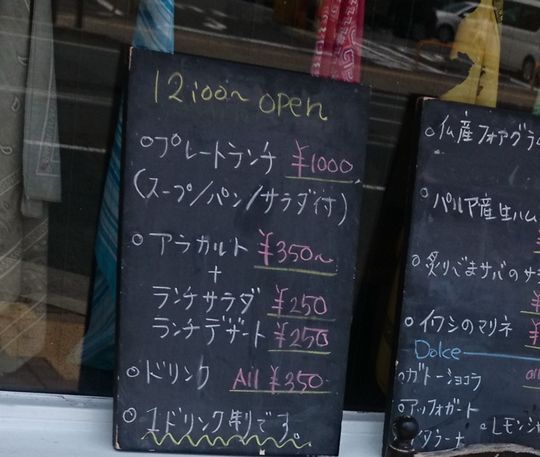 12:00〜 open
○プレートランチ ¥1000
(スープ/パン/サラダ付)
○アラカルト ¥350〜
+
ランチサラダ ¥250
ランチデザート ¥250
○ドリンク All ¥350
○1ドリンク制です。
○仏産フォアグラ
○パルマ産生ハム
○炙りごまサバの
○イワシのマリネ
Dolce
○ガトーショコラ
○アッフォガート
○レモンシャ